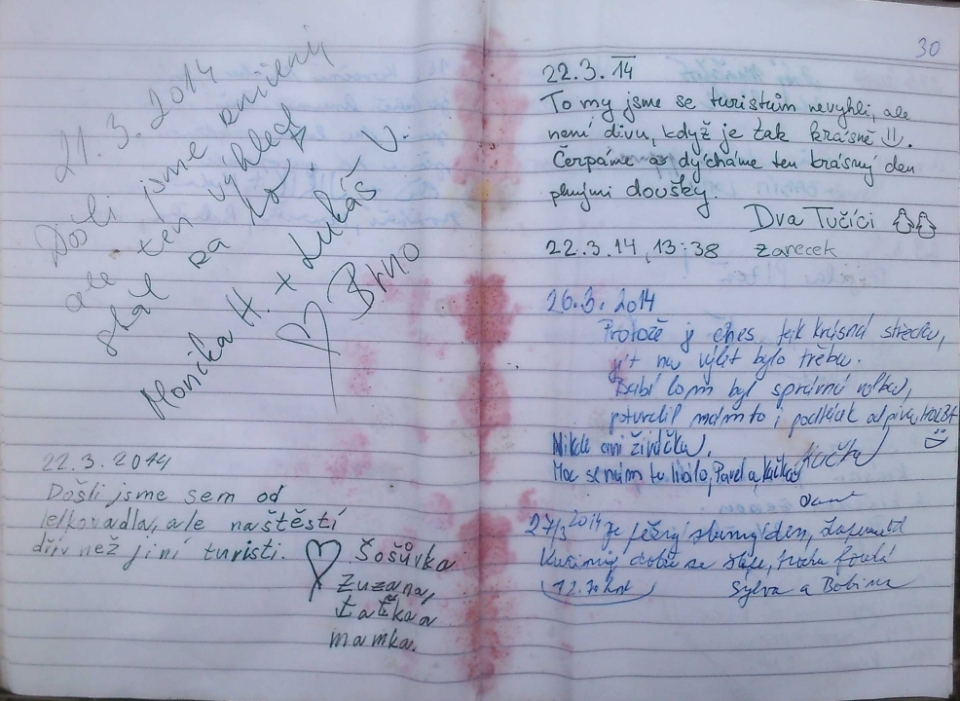 21.3.2014
Došli jsme zničený
ale ten výhled
stál za to
Monika H. + Lukáš V.
Brno
22.3.2014
Došli jsme sem od
letkovadla, ale naštěstí
dřív než jiní turisti.
Šošůvka
Zuzana,
taťka a
mamka.
30
22.3.14
To my jsme se turistům nevyhli, ale
není divu, když je tak krásně
Čerpáme a dýcháme ten krásný den
plnými doušky.
Dva Tučíci
22.3.14, 13:38 zarecek
26.3.2014
Protože je dnes tak krásná středa,
jít na výlet bylo třeba.
Babí lom byl správná volba,
potvrdil nám to i podtácek od piva, HOLBA
Nikde ani živáčka,
Moc se nám tu líbilo, Pavel a Kačka
Kačka
27/3 2014 Je den,
Kuřimský se trochu fouká
Sylva a